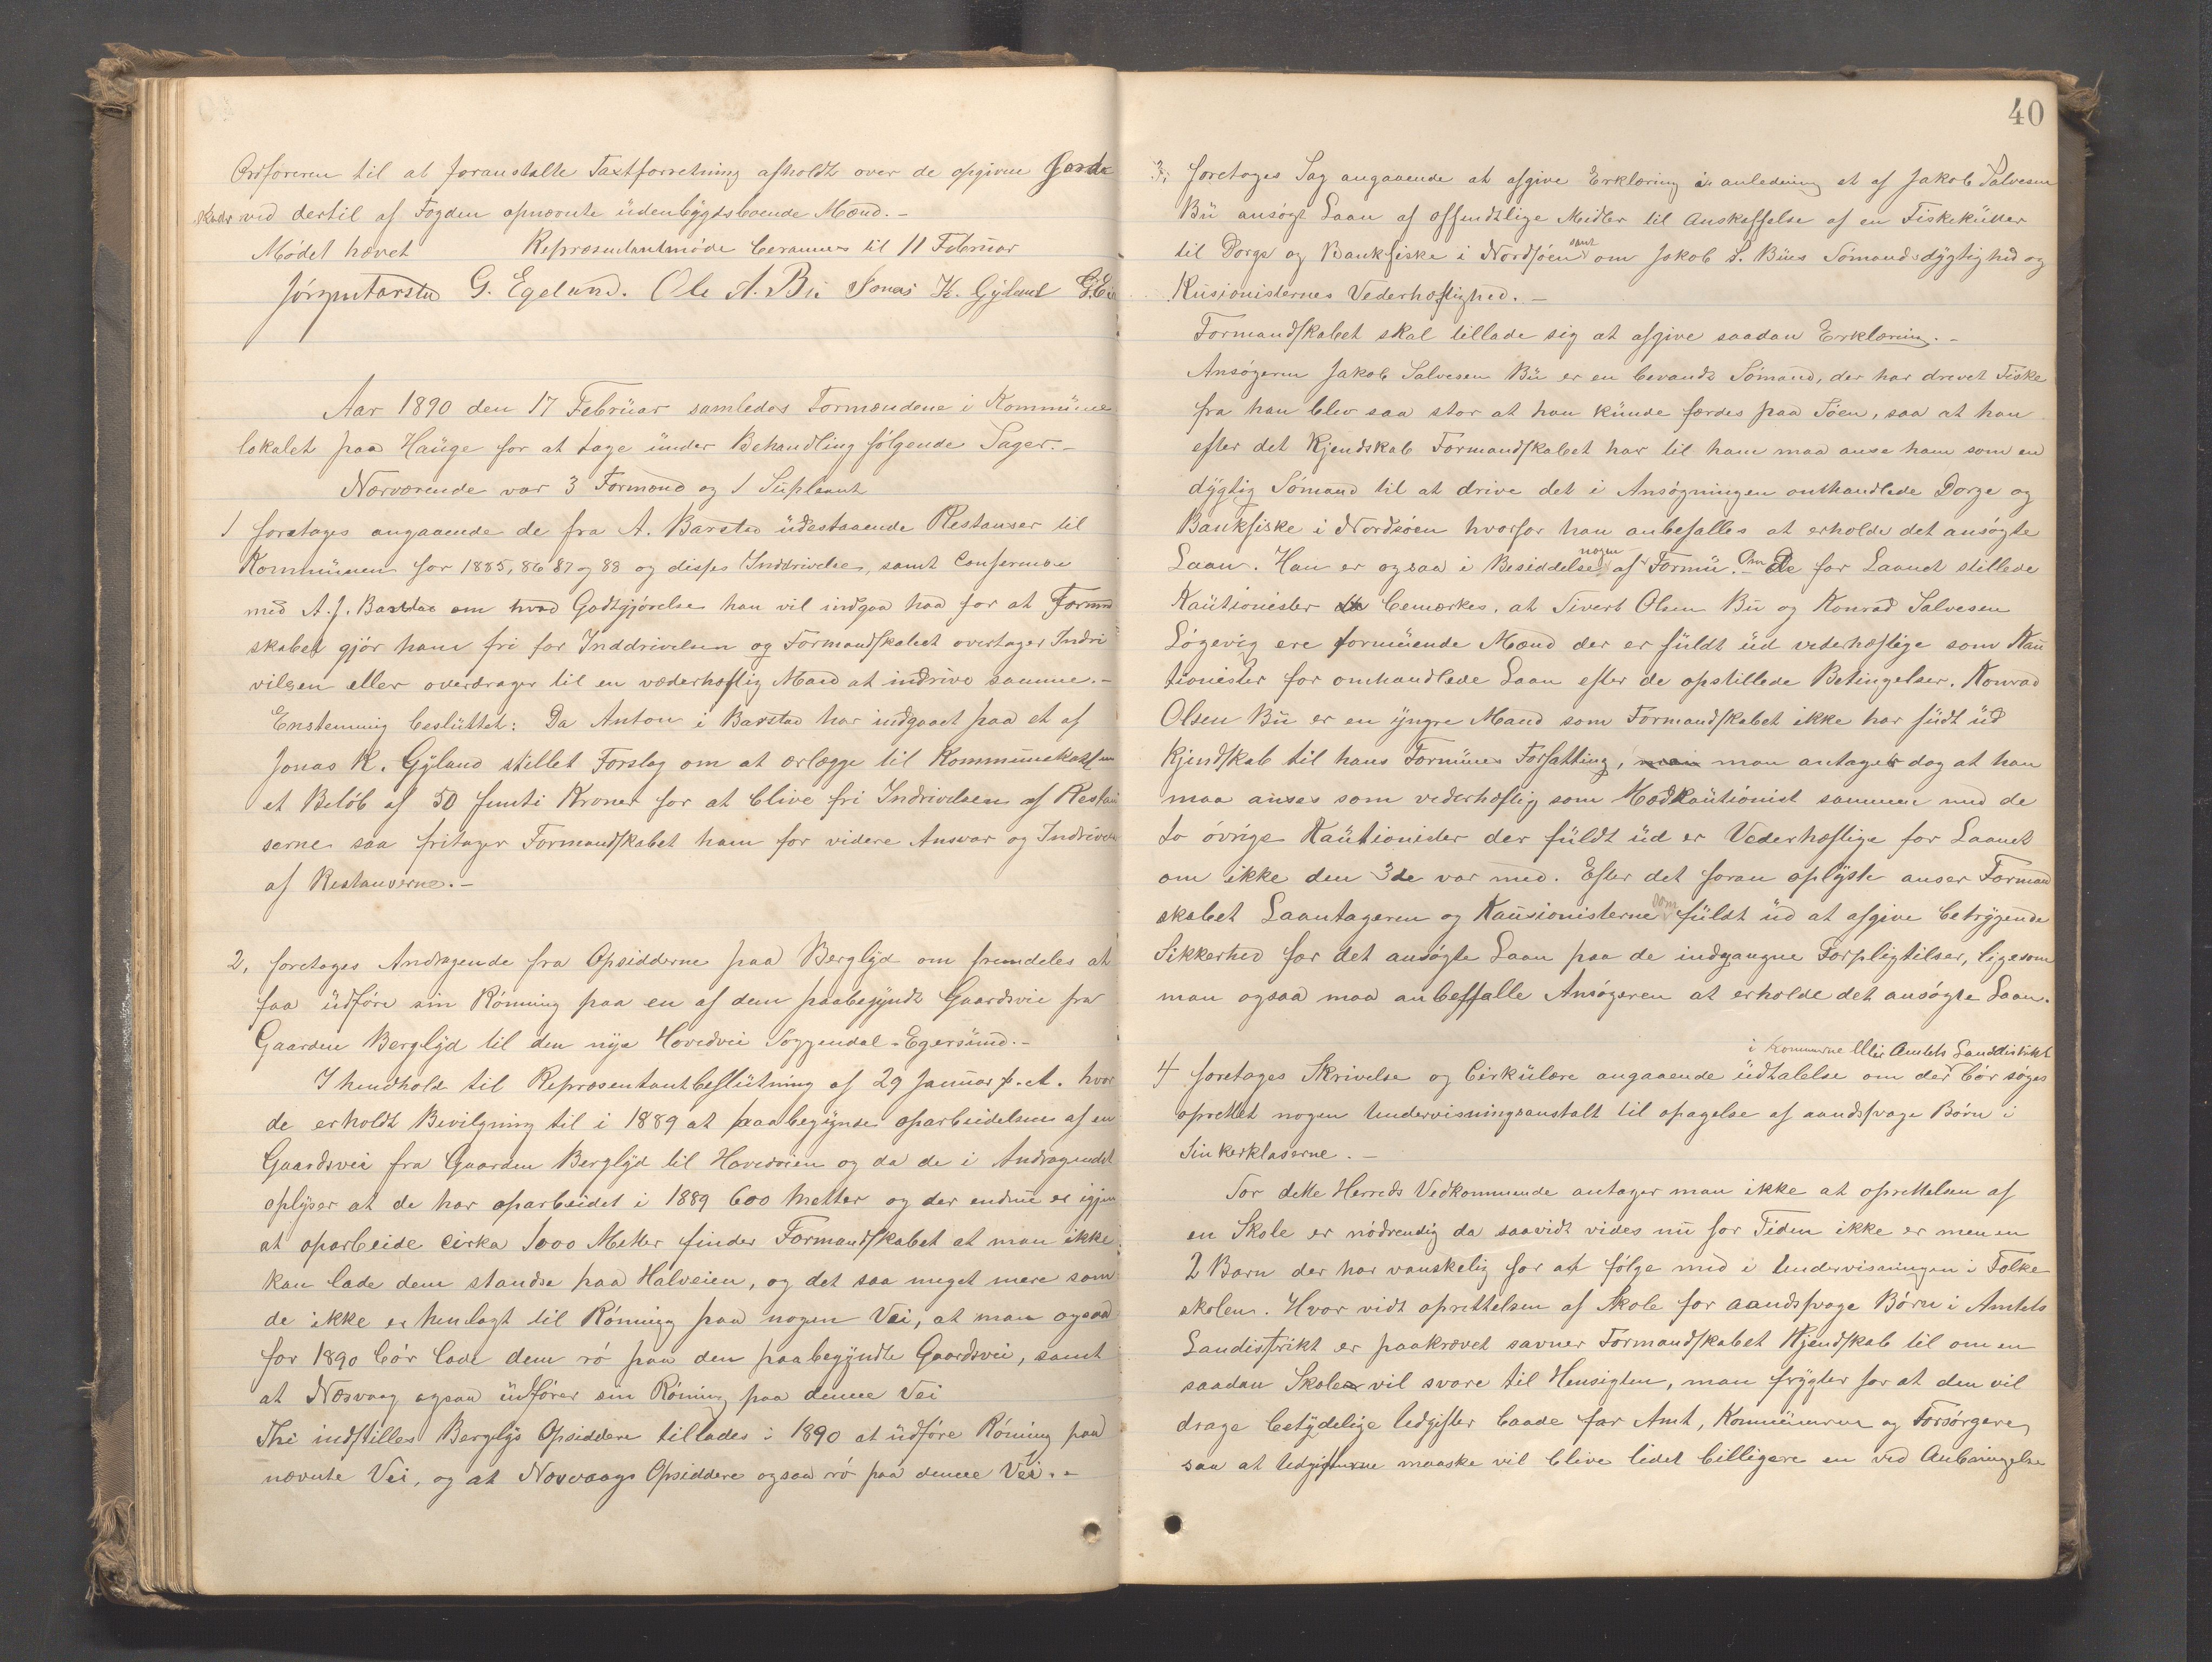 Ordføreren til at foranstalte Taxtforretning afholdt over de opgivne Jorde
skader ved dertil af Fogden opnævnte üdenbÿgdsboende Mænd.-
Mødet hævet Repræsentantmøde berammes til 11 Februar
Jørgen Aarstad G. Egeland. Ole A. Bü Jonas K. Gÿland
Aar 1890 den 17 Februar samledes Formændene i Kommüne
lokalet paa Haüge for at tage ünder Behandling følgende Sager.-
Nærværende var 3 Formænd og 1 Sûpleant
1 foretages angaaende de fra A. Barstad üdestaaende Restanser til
Kommünen for 1885, 86 87 og 88 og disses Inddrivelse, samt Confermere
med A. J. Barstad om hvad Godtgjørelse han vil indgaa paa for at Formd
skabet gjør ham fri for Inddrivelsen og Formandskabet overtager Indri
vilsen eller overdrager til en væderhæftig Mand at indrive samme.-
Enstemmig beslüttet: Da Anton i Barstad har indgaaet paa et af
Jonas K. Gÿland stillet Forslag om at erlægge til Kommunekassen
et Beløb af 50 femti Kroner for at blive fri Indrivelsen af Restan
serne saa fritager Formandskabet ham for videre Ansvar og Indrivelse
af Restanserne.-
2, foretages Andragende fra Opsidderne paa Berglÿd om fremdeles at
faa üdføre sin Rønning paa en af dem paabegÿndt Gaardsvei fra
Gaarden Berglÿd til den nÿe Hovedvei Soggendal-Egersünd.-
I henhold til Repræsentantbeslütning af 29 Januar f. A. hvor
de erholdt Bevilgning til i 1889 at paabegÿnde oparbeidelsen af en
Gaardsvei fra Gaarden Berglÿd til Hovedveien og da de i Andragendet
oplÿser at de har oparbeidet i 1889 600 Metter og der endnu er igjen
at oparbeide cirka 1000 Metter finder Formandskabet at man ikke
kan lade dem standse paa Halveien, og det saa meget mere som
de ikke er henlagt til Rønning paa nogen Vei, at man ogsaa
for 1890 bør lade dem rø paa den paabegÿndte Gaardsvei, samt
at Nesvaag ogsaa üdfører sin Røning paa denne Vei
Thi indstilles Berglÿs Opsiddere tillades i 1890 at üdføre Røning paa
nævnte Vei, og at Nesvaags Opsiddere ogsaa rø paa denne Vei.-
40
3, foretages Sag angaaende at afgive Erklæring i anledning et af Jakob Salvesen
Bü ansøgt Laan af offendtlige Midler til Anskaffelse af en Fiskekütter
til Dorge og Bankfiske i Nordsøen samt om Jakob S. Büs Sømandsdÿgtighed og
Kusionisternes Vederhæftighed.-
Formandskabet skal tillade sig at afgive saadan Erklæring.-
Ansøgeren Jakob Salvesen Bü er en bevandt Sømand, der har drevet Fiske
fra han blev saa stor at han künde færdes paa Søen, saa at han
efter det Kjendskab Formandskabet har til ham maa anse ham som en
dÿgtig Sømand til at drive det i Ansøgningen omhandlede Dorge og
Bankfiske i Nordsøen hvorfor han anbefalles at erholde det ansøgte
Laan. Han er ogsaa i Besiddelse nogen af Formü.- Om de for Laanet stillede
Kaütionister bemærkes, at Sivert Olsen Bü og Konrad Salvesen
Løgevig ere formüende Mænd der er füldt üd vederhæftige som Kaü
tionister for omhandlede Laan efter de opstillede Betingelser. Konrad
Olsen Bü er en ÿngre Mand som Formandskabet ikke har füdt üd
Kjendskab til hans Formües Forfatting, man antager dog at han
maa anses som vederhæftig som Medkaütionist sammen med de
to øvrige Kaütionister der füldt üd er Vederhæftige for Laanet
om ikke den 3de var med. Efter det foran oplÿste anser Formand
skabet Laantageren og Kaüsionisterne som füldt üd at afgive betrÿgende
Sikkerhed for det ansøgte Laan paa de indgangne Forpligtelser, ligesom
man ogsaa maa anbeffalle Ansøgeren at erholde det ansøgte Laan.
i Kommunerne eller Amtets Landdistrikt
4 foretages Skrivelse og Cirkülære angaaende üdtalelse om der bør søges
oprettet nogen Undervisningsanstalt til opagelse af aandsvage Børn i
Sinkerklaserne.-
For dette Herreds Vedkommende antager man ikke at oprettelsen af
en Skole er nødvendig da saavidt vides nü for Tiden ikke er men en
2 Barn der har vanskelig for at følge med i Undervisningen i Folke
skolen. Hvor vidt oprettelsen af Skole for aandsvage Børn i Amtets
Landistrikt er paakrævet savner Formandskabet Kjendskab til om en
saadan Skole vil svare til Hensigten, man frÿgter for at den vil
drage betÿdelige Udgifter baade for Amt, Kommünerne og Forsørgere,
saa at Udgifterne maaske vil blive lidet billigere en ved Anbringelse